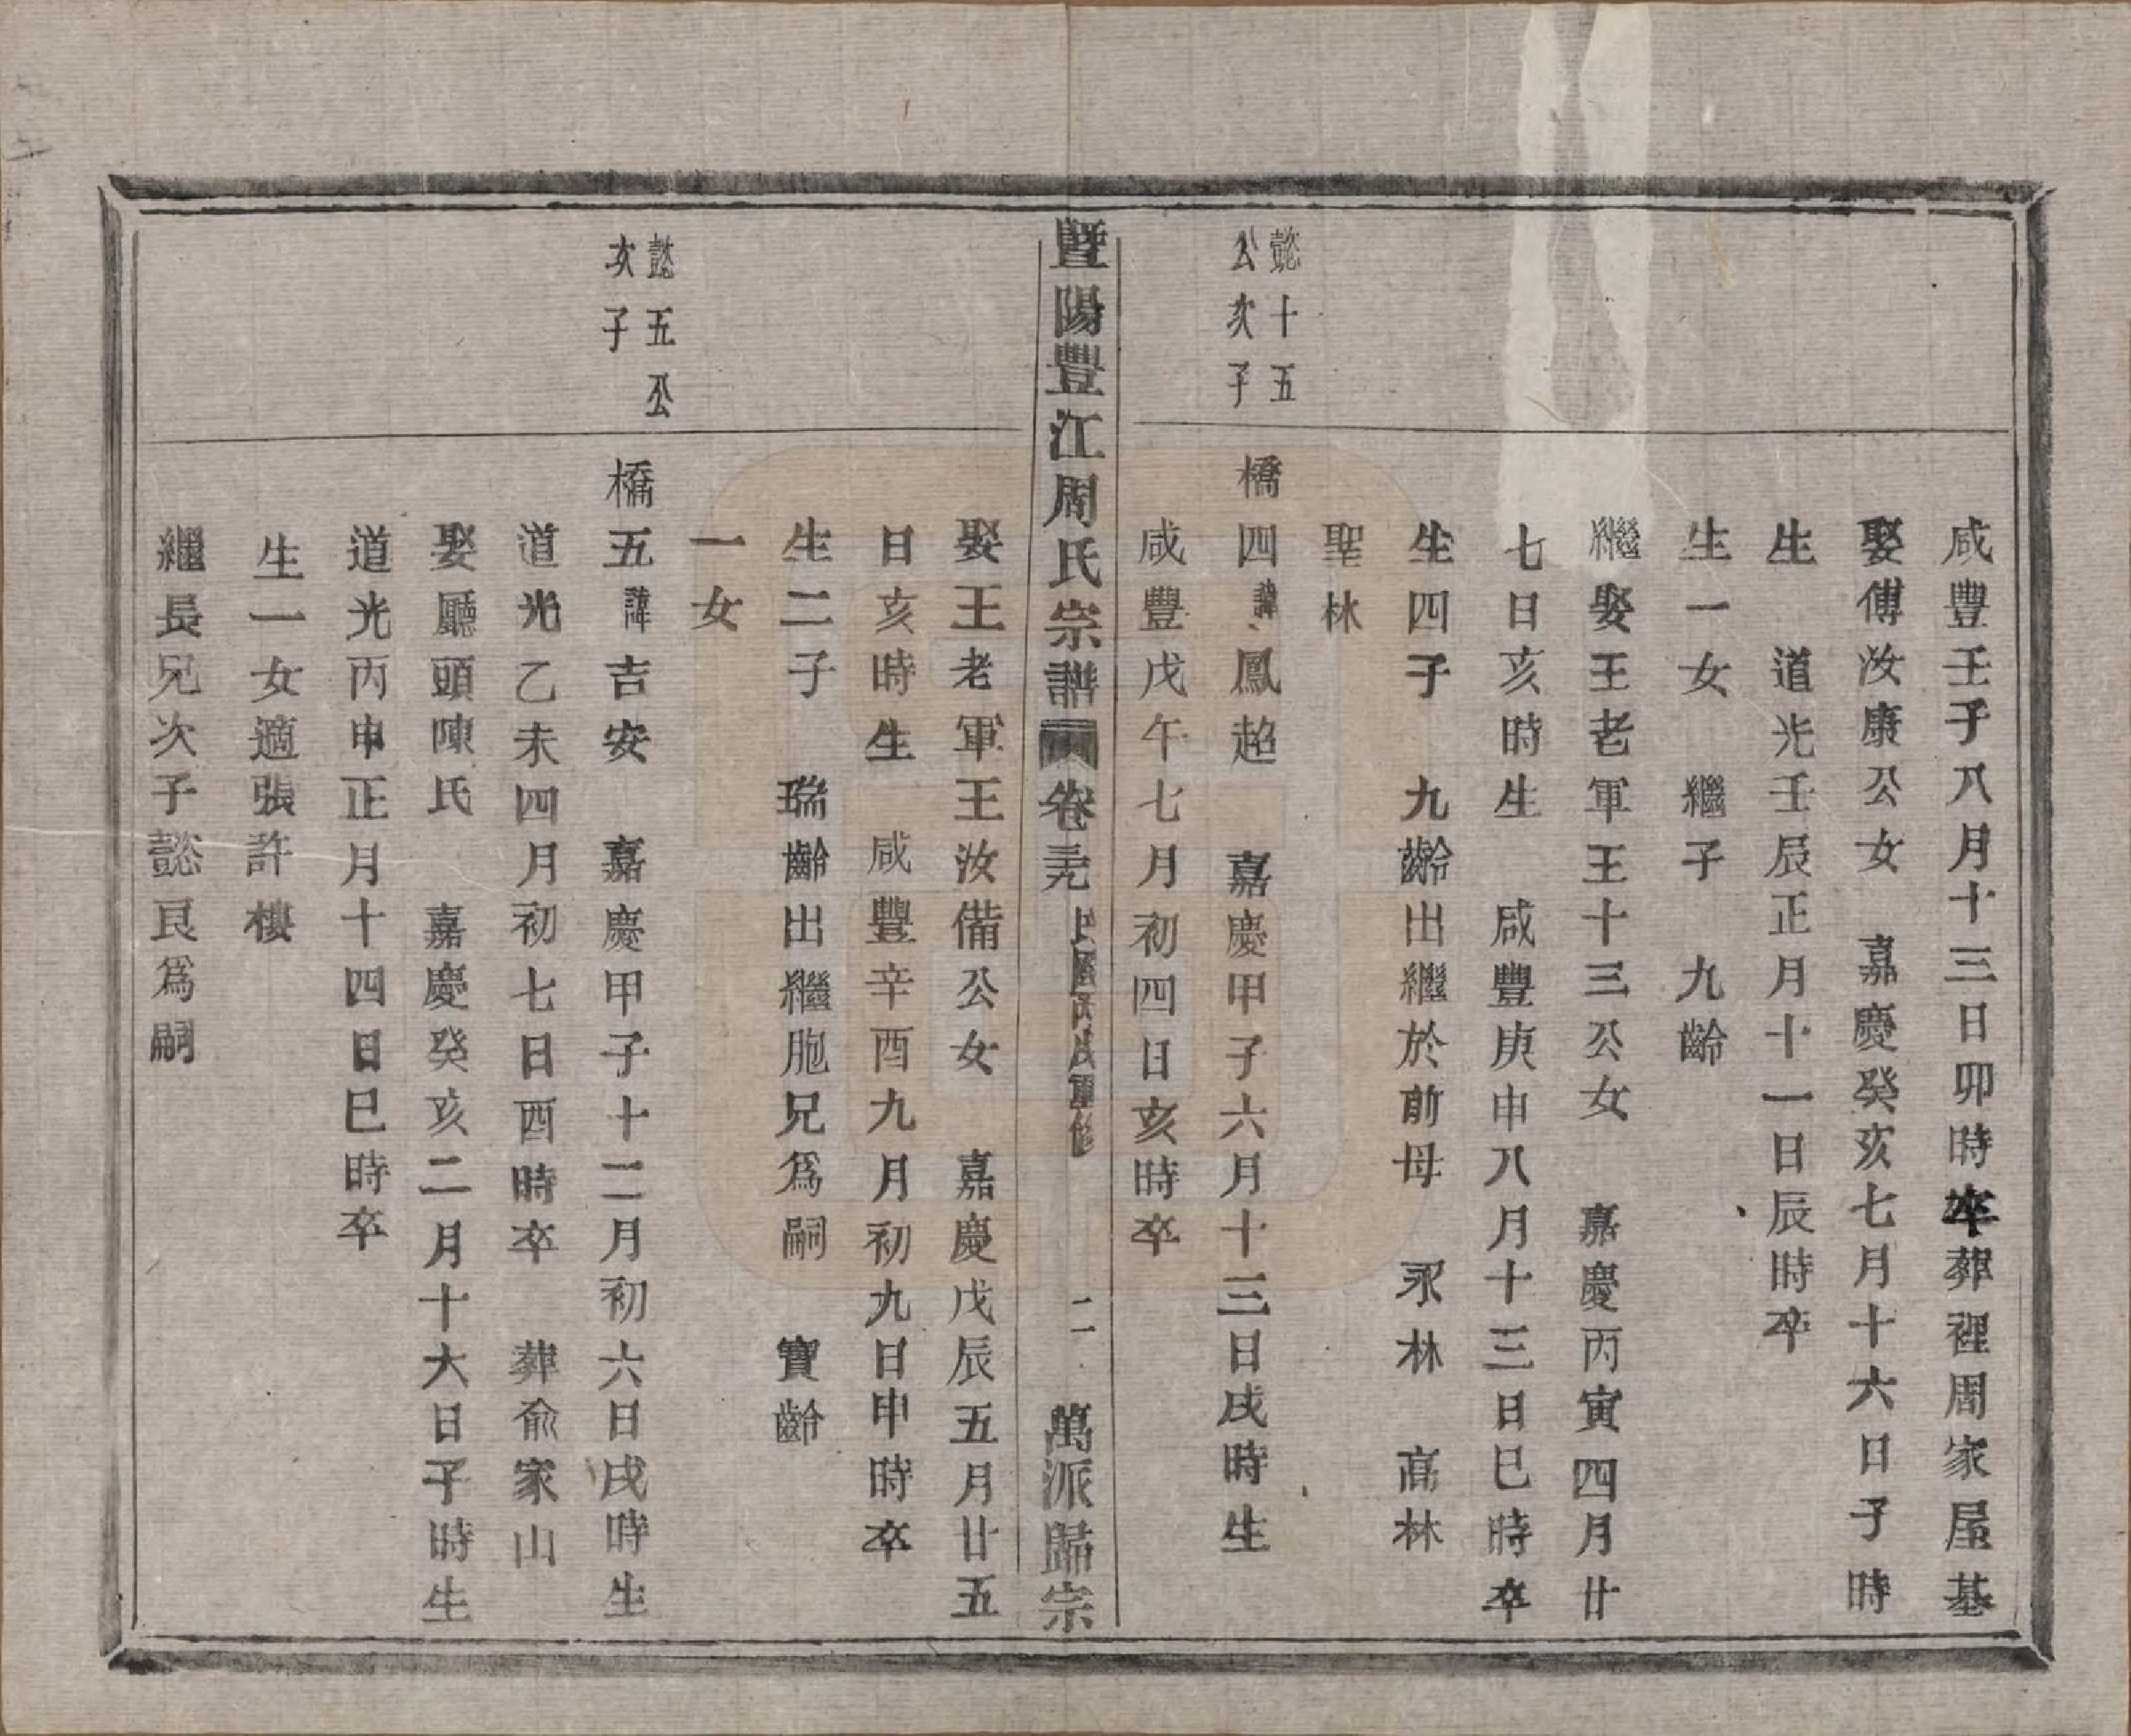 咸豐壬子八月十三日卯時卒葬裡周家屋基
娶傅汝康公女 嘉慶癸亥七月十六日子時
生 道光壬辰正月十一日辰時卒
生一女 繼子 九齡
繼娶王老軍王十三公女 嘉慶丙寅四月廿
七日亥時生 咸豐庚申八月十三日巳時卒
生四子 九齡出繼於前母 永林 高林
聖林
懿十五
公次子
橋四諱鳳超 嘉慶甲子六月十三日戌時生
咸豐戊午七月初四日亥時卒
暨陽豐江周氏宗譜 卷 二 萬派歸宗
娶王老軍王汝備公女 嘉慶戊辰五月廿五
日亥時生 咸豐辛酉九月初九日申時卒
生二子 瑞齡出繼胞兄爲嗣 寶齡
一女
懿五公
次子
橋五諱吉安 嘉慶甲子十二月初六日戌時生
道光乙未四月初七日酉時卒 葬俞家山
娶廳頭陳氏 嘉慶癸亥二月十六日子時生
道光丙申正月十四日巳時卒
生一女適張許樓
繼長兄次子懿良爲嗣